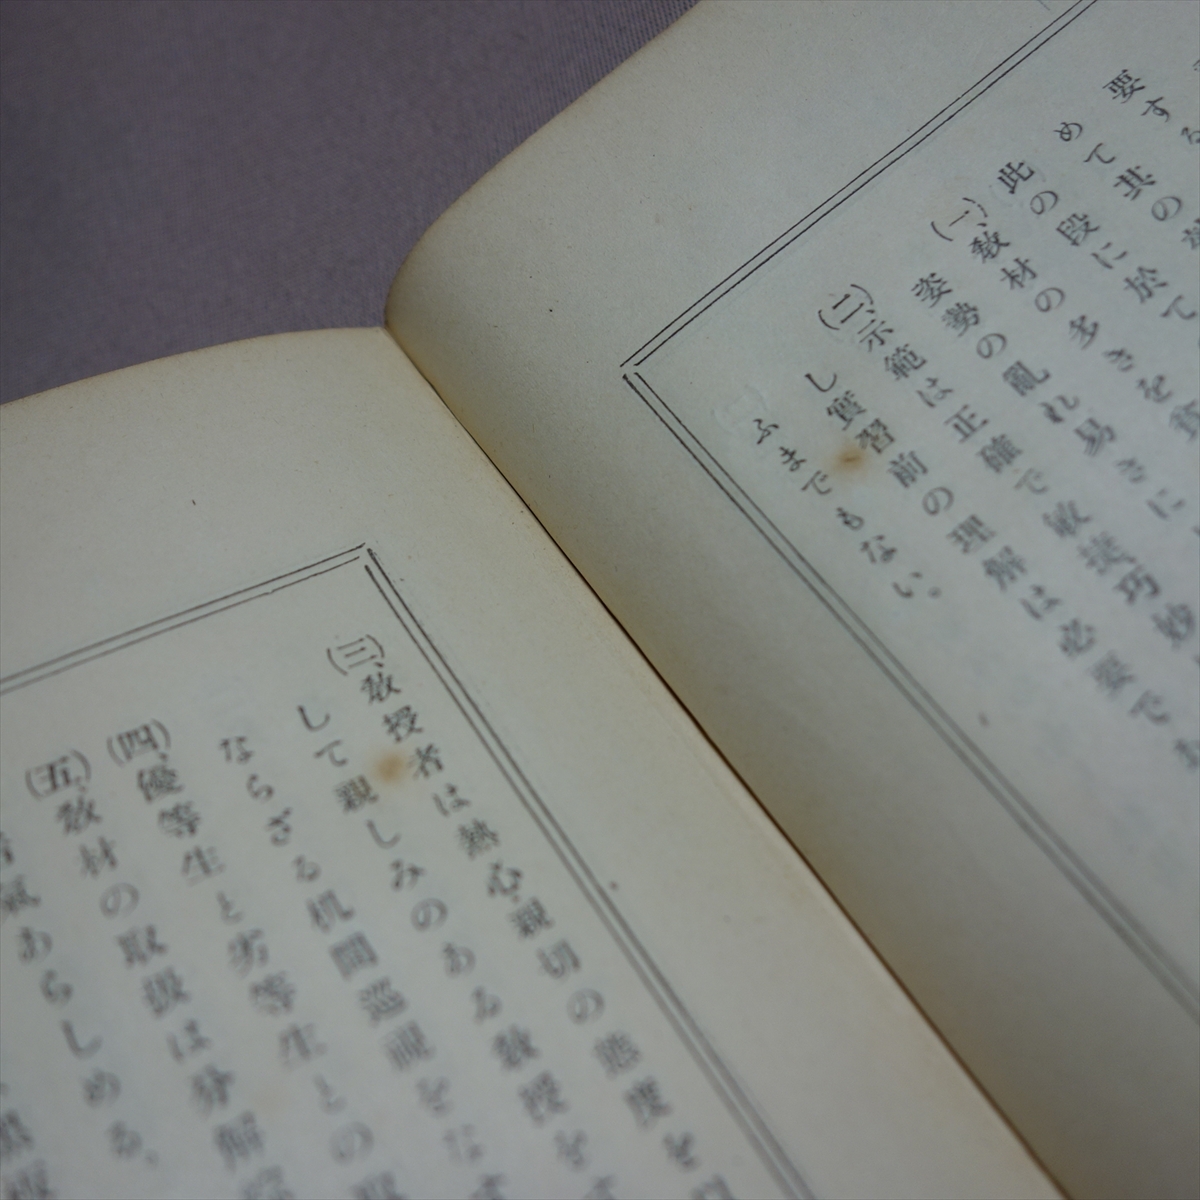 要する
めて其の
此の段に於て
(一)、敎材の多きを貪
姿勢の亂れ易きに
(二)、示範は正確で敏捷巧妙
し實習前の理解は必要で
ふまでもない。
(三)、敎授者は熱心、親切の態度を
して親しみのある敎授をす
ならざる机間巡視をなす
(四)、優等生と劣等生との
(五)、敎材の取扱は分解
氣あらしめる。
黒板